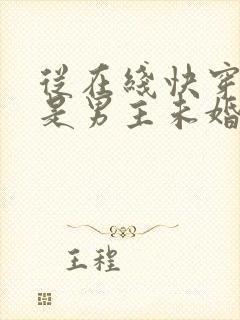 從在綫快穿
是男主未婚
王程